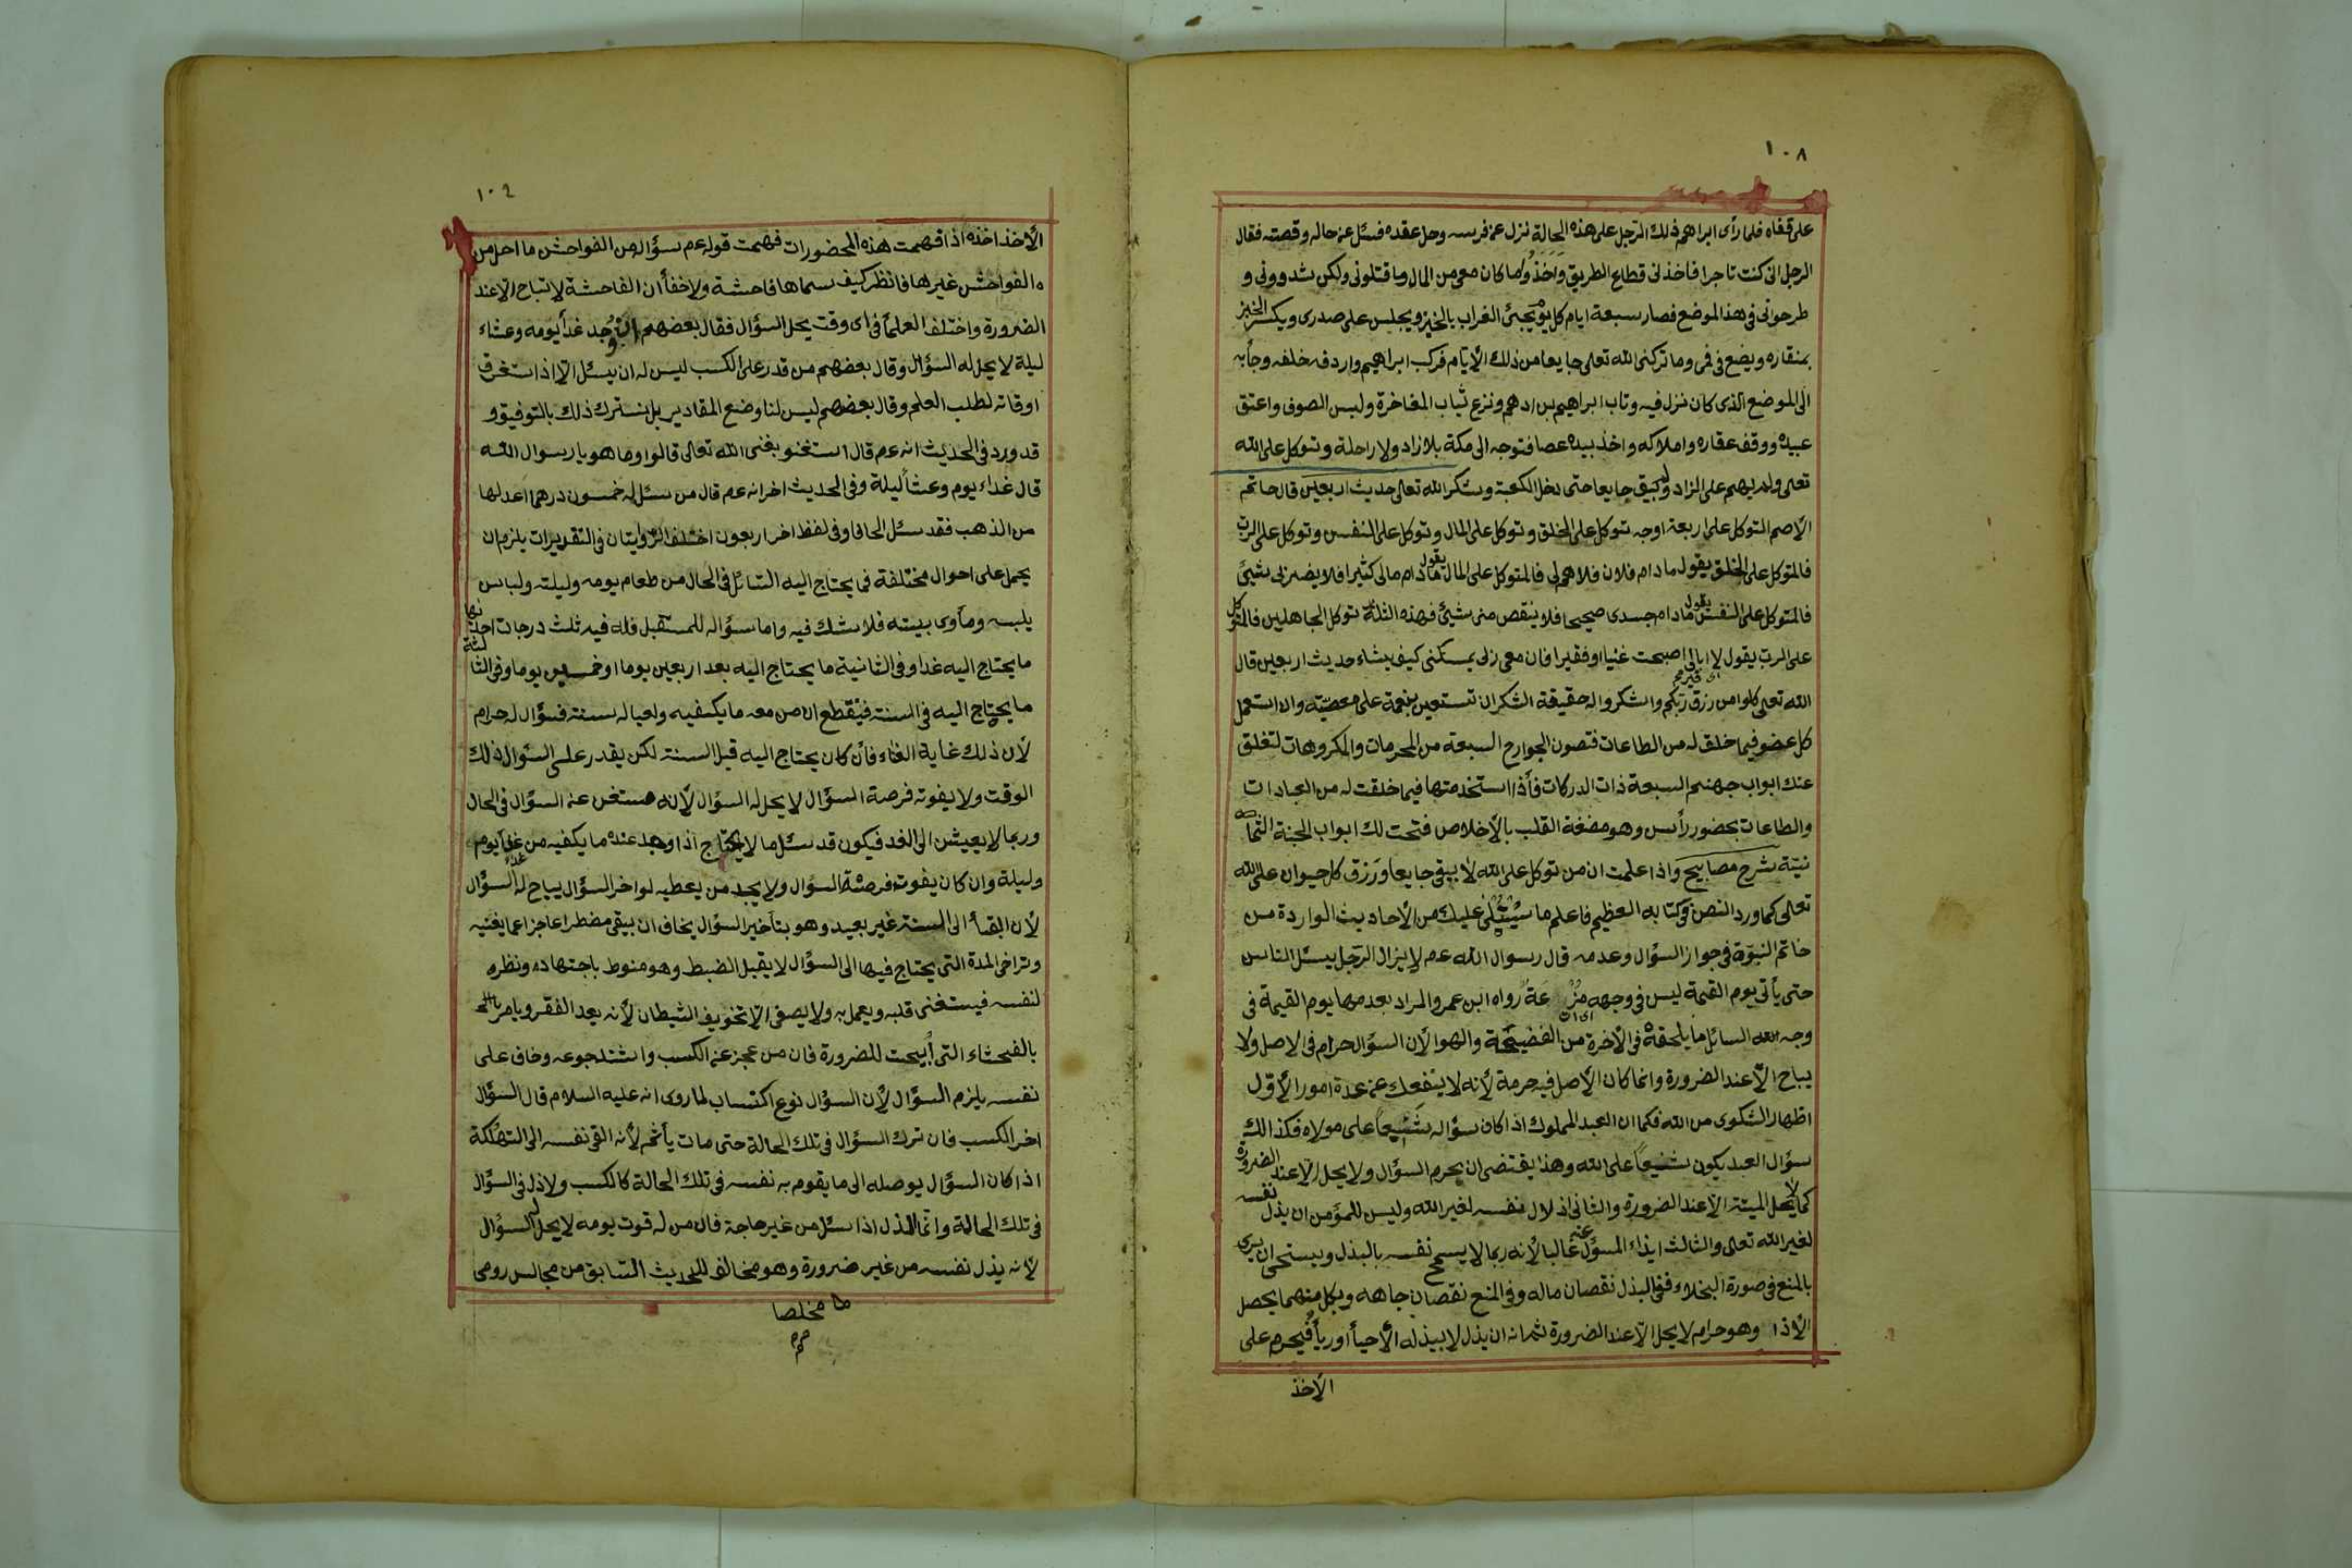 ١٠٨
على قفاه فلما رأى ابراهيم ذلك الرجل على هذه الحالة نزل عن فرسه وحل عقده فسئل عن حاله وقصته فقال
الرجل انى كنت تاجرا فاخذنى قطاع الطريق وَاَخَذُوا ما كان معى من المال وما قتلونى ولكن شدوونى و
طرحوانى فى هذا الموضع فصار سبعة ايام كل يوم يجئ الغراب بالخبز ويجلس على صدرى ويكسر الخبز
بمنقاره ويضع فى فمى وما تركنى الله تعالى جايعا من ذلك الأيام فركب ابراهيم واردفه خلفه وجأ به
الى الموضع الذى كان نزل فيه وتاب ابراهيم بن ادهم ونزع ثياب المفاخرة ولبس الصوف واعتق
عبيده ووقف عقاره واملاكه واخذ بيده عصا فتوجه الى مكة بلا زاد ولا راحلة وتوكل على الله
تعالى ولم يهم على الزاد ولم يبق جايعا حتى دخل الكعبة وشكر الله تعالى حديث اربعين قال حاتم
الأصم التوكل على اربعة اوجه توكل على الخلق وتوكل على المال وتوكل على النفس وتوكل على الربّ
فالمتوكل على الخلق يقول ما دام فلان فلا هم لى فالمتوكل على المال يقول ما دام مالى كثيرا فلا يضرنى شيئ
فالمتوكل على النفس يقول ما دام جسدى صحيحا فلا ينقص منى شيئ فهذه الثلثة توكل الجاهلين فالمتوكل
على الرب يقول لا ابالى اصبحت غنيا او فقيرا فان معى ربى يمسكنى كيف يشاء حديث اربعين قال
الله تعالى كلوا من رزق ربكم واشكروا له حقيقة الشكر ان تستعين بنعمة على معصيته وان استعمل
كل عضو فيما خلق له من الطاعات فتصون الجوارح السبعة من المحرمات والمكروهات لتغلق
عنك ابواب جهنم السبعة ذات الدركات فأذا استخدمتها فيما خلقت له من العبادات
والطاعات بحضور رأس وهو مضغة القلب بالأخلاص فتحت لك ابواب الجنة الثما
نية شرح مصابيح واذا علمت ان من توكل على الله لا يبقى جايعا وَرَزق كل حيوان على الله
تعالى كما ورد النص فى كتابه العظيم فاعلم ما سيتلى عليك من الأحاديث الواردة من
خاتم النبوّة فى جواز السؤال وعدمه قال رسوال الله عم لا يزال الرّجل يسئل الناس
حتى يأتى يوم القيمة ليس فى وجهه مُزْعَةُ رواه ابن عمر والمراد بعدمها يوم القيمة فى
وجه السائل ما يلحقه فى الأخرة من الفضيحة والهوا لأن السؤال حرام فى الاصل ولا
يباح الّا عند الضرورة وانما كان الأصل فيه حرمة لأنه لا ينفعك عن عدة امور الأوّل
اظهار الشكوى من الله فكما ان العبد المملوك اذا كان سؤاله شنيعاً على مولاه فكذالك
سؤال العبد يكون شنيعاً على الله وهذا يقتضى ان يحرم السؤال ولا يحل الّا عند الضرورة
كما لا يحل الميتة الّا عند الضرورة والثانى اذلال نفسه لغير الله وليس للمؤمن ان يذل نفسه
لغير الله تعالى والثالث ايذاء المسؤل عنه غالبا لأنه ربما لا يسمح نفسه بالبذل ويستحى ان يرى
بالمنع فى صورة البخلاء ففى البذل نقصان ماله وفى المنع نقصان جاهه وبكل منهما يحصل
الأذا وهو حرام لا يحل الّا عند الضرورة ثم انه ان يذل لا يبيذله الأحيأ او ريأ فيحرم على
الأخذ
١٠٤
الأخذ اخذه اذا فهمت هذه المحضورات فهمت قوله عم سؤال من الفواحش ما احل من
الفواحش غيرها فانظر كيف سماها فاحشة ولا خفأ ان الفاحشة لا تباح الا عند
الضرورة واختلف العلمأ فى اى وقت يحل السؤال فقال بعضهم ان وجد غدأ يومه وعشاء
ليلة لا يحل له السؤال وقال بعضهم من قدر على الكسب ليس له ان يسئل الّا اذا استغرق
اوقاته لطلب العلم وقال بعضهم ليس لنا وضع المقادير بل نسترك ذلك بالتوفيق و
قد ورد فى الحديث انه عم قال استغنو بغنى الله تعالى قالوا وما هو يا رسوال الله
قال غداء يوم وعشأ ليلة وفى الحديث اخر انه عم قال من سئل له خمسون درهما اعدلها
من الذهب فقد سئل الحافا وفى لفظ اخر اربعون اختلف الرّوايتان فى التقديرات يلزم ان
يحمل على احوال مختلفة فما يحتاج اليه السّائل فى الحال من طعام يومه وليلته ولباس
يلبسه ومأوى بيسته فلا شك فيه واما سؤاله للمستقبل فله فيه ثلث درجات احدٰيها
ما يحتاج اليه غدا وفى الثانية ما يحتاج اليه بعد اربعين يوما او خمسين يوما وفى الثالثة
ما يحتاج اليه فى السنة فيقطع ان من معه ما يكفيه ولعياله سنة فسؤاله حرام
لأن ذلك غاية الغناء فأن كان يحتاج اليه قبل السنة لكن يقدر على السؤال ذلك
الوقت ولا يفوته فرصة السؤال لا يحل له السؤال لأنه مستغن عن السؤال فى الحال
وربما لا يعيش الى الغد فيكون قد سئل ما لا يحتاج اذا وجد عنده ما يكفيه من غدأ يوم
وليلة وان كان يفوته فرصة السؤال ولا يجد من يعطيه لو اخر السؤال يباح له السؤال
لأن البقأ الى السنة غير بعيد وهو بتأخير السؤال يخاف ان يبقى مضطرا عاجزا عما يغنيه
وتراخى المدة التى يحتاج فيها الى السؤال لا يقبل الضبط وهو منوط باجتهاده ونظره
لنفسه فيستغنى قلبه ويعمل به ولا يصغى الى تخويف الشيطان لأنه يعد الفقر ويامر
بالفحشاء التى أبيحت للضرورة فان من عجز عن الكسب واشتد جوعه وخاف على
نفسه يلزم السؤال لأن السؤال نوع اكتساب لما روى انه عليه السلام قال السؤال
اخر الكسب فان ترك السؤال فى تلك الحالة حتى مات يأثم لأنه القى نفسه الى التهلكة
اذا كان السؤال يوصله الى ما يقوم به نفسه فى تلك الحالة كالكسب ولا ذل فى السؤال
فى تلك الحالة وانما الذل اذا سئل من غير حاجة فان من له قوت يومه لا يحل له السؤال
لأنه يذل نفسه من غير ضرورة وهو مخالف للحديث السّابق من مجالس رومى
مخلصا